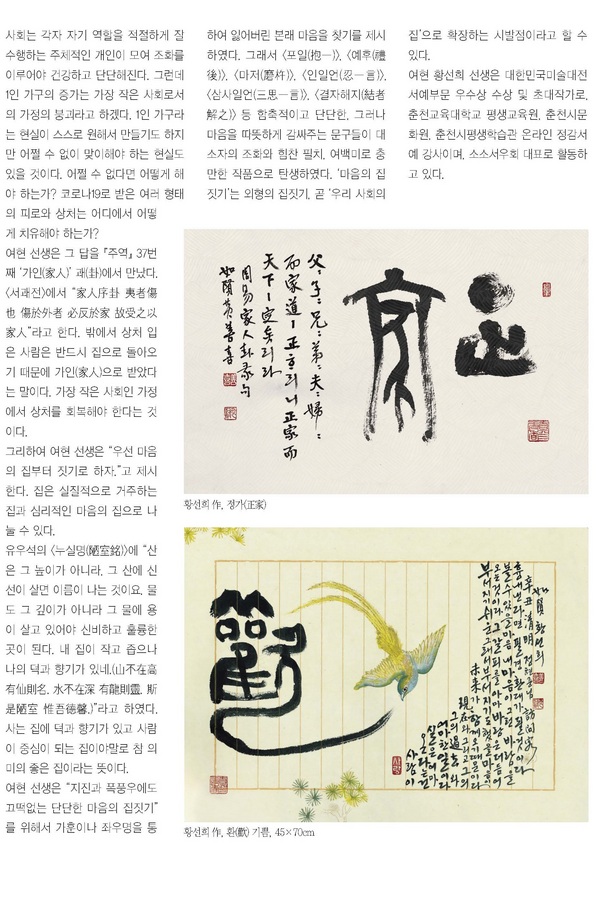 사회는 각자 자기 역할을 적절하게 잘
수행하는 주체적인 개인이 모여 조화를
이루어야 건강하고 단단해진다. 그런데
1인 가구의 증가는 가장 작은 사회로서
의 가정의 붕괴라고 하겠다. 1인 가구라
는 현실이 스스로 원해서 만들기도 하지
만 어쩔 수 없이 맞이해야 하는 현실도
있을 것이다. 어쩔 수 없다면 어떻게 해
야 하는가? 코로나19로 받은 여러 형태
의 피로와 상처는 어디에서 어떻
게 치유해야 하는가?
여현 선생은 그 답을 『주역』 37번
째 ‘가인(家人)’ 괘(卦)에서 만났다.
〈서괘전〉에서 “家人序卦 夷者傷
也 傷於外者 必反於家 故受之以
家人”라고 한다. 밖에서 상처 입
은 사람은 반드시 집으로 돌아오
기 때문에 가인(家人)으로 받았다
는 말이다. 가장 작은 사회인 가정
에서 상처를 회복해야 한다는 것
이다.
그리하여 여현 선생은 “우선 마음
의 집부터 짓기로 하자.”고 제시
한다. 집은 실질적으로 거주하는
집과 심리적인 마음의 집으로 나
눌 수 있다.
유우석의 〈누실명(陋室銘)〉에 “산
은 그 높이가 아니라, 그 산에 신
선이 살면 이름이 나는 것이요, 물
도 그 깊이가 아니라 그 물에 용
이 살고 있어야 신비하고 훌륭한
곳이 된다. 내 집이 작고 좁으나
나의 덕과 향기가 있네.(山不在高
有仙則名, 水不在深 有龍則靈, 斯
是陋室 惟吾德馨,)”라고 하였다.
사는 집에 덕과 향기가 있고 사람
이 중심이 되는 집이야말로 참 의
미의 좋은 집이라는 뜻이다.
여현 선생은 “지진과 폭풍우에도
끄떡없는 단단한 마음의 집짓기”
를 위해서 가훈이나 좌우명을 통
하여 잃어버린 본래 마음을 찾기를 제시
하였다. 그래서 〈포일(抱一)〉, 〈예후(禮
後)〉, 〈마저(磨杵)〉, 〈인일언(忍一言)〉,
〈삼사일언(三思一言)〉, 〈결자해지(結者
解之)〉 등 함축적이고 단단한, 그러나
마음을 따뜻하게 감싸주는 문구들이 대
소자의 조화와 힘찬 필치, 여백미로 충
만한 작품으로 탄생하였다. ‘마음의 집
짓기’는 외형의 집짓기, 곧 ‘우리 사회의
집’으로 확장하는 시발점이라고 할 수
있다.
여현 황선희 선생은 대한민국미술대전
서예부문 우수상 수상 및 초대작가로,
춘천교육대학교 평생교육원, 춘천시문
화원, 춘천시평생학습관 온라인 정감서
예 강사이며, 소소서우회 대표로 활동하
고 있다.
父父子子兄兄弟弟夫夫婦婦
而家道正하리니 正家而
天下ㅣ定矣리라
周易家人卦彖句
如賢 黃善喜
황선희 作, 정가(正家)
歡
사람이
온다는 건
실은
어마어마한 일이다
그의 過去와
現在와 그리고 그의
未來가 함께 오기 때문이다
황선희 作, 환(歡) 기쁨, 45×70cm